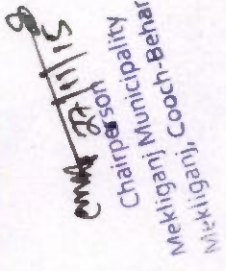 27/11/15
Chairperson
Chairperson
Mekliganj Municipality
Mekliganj, Cooch-Behar